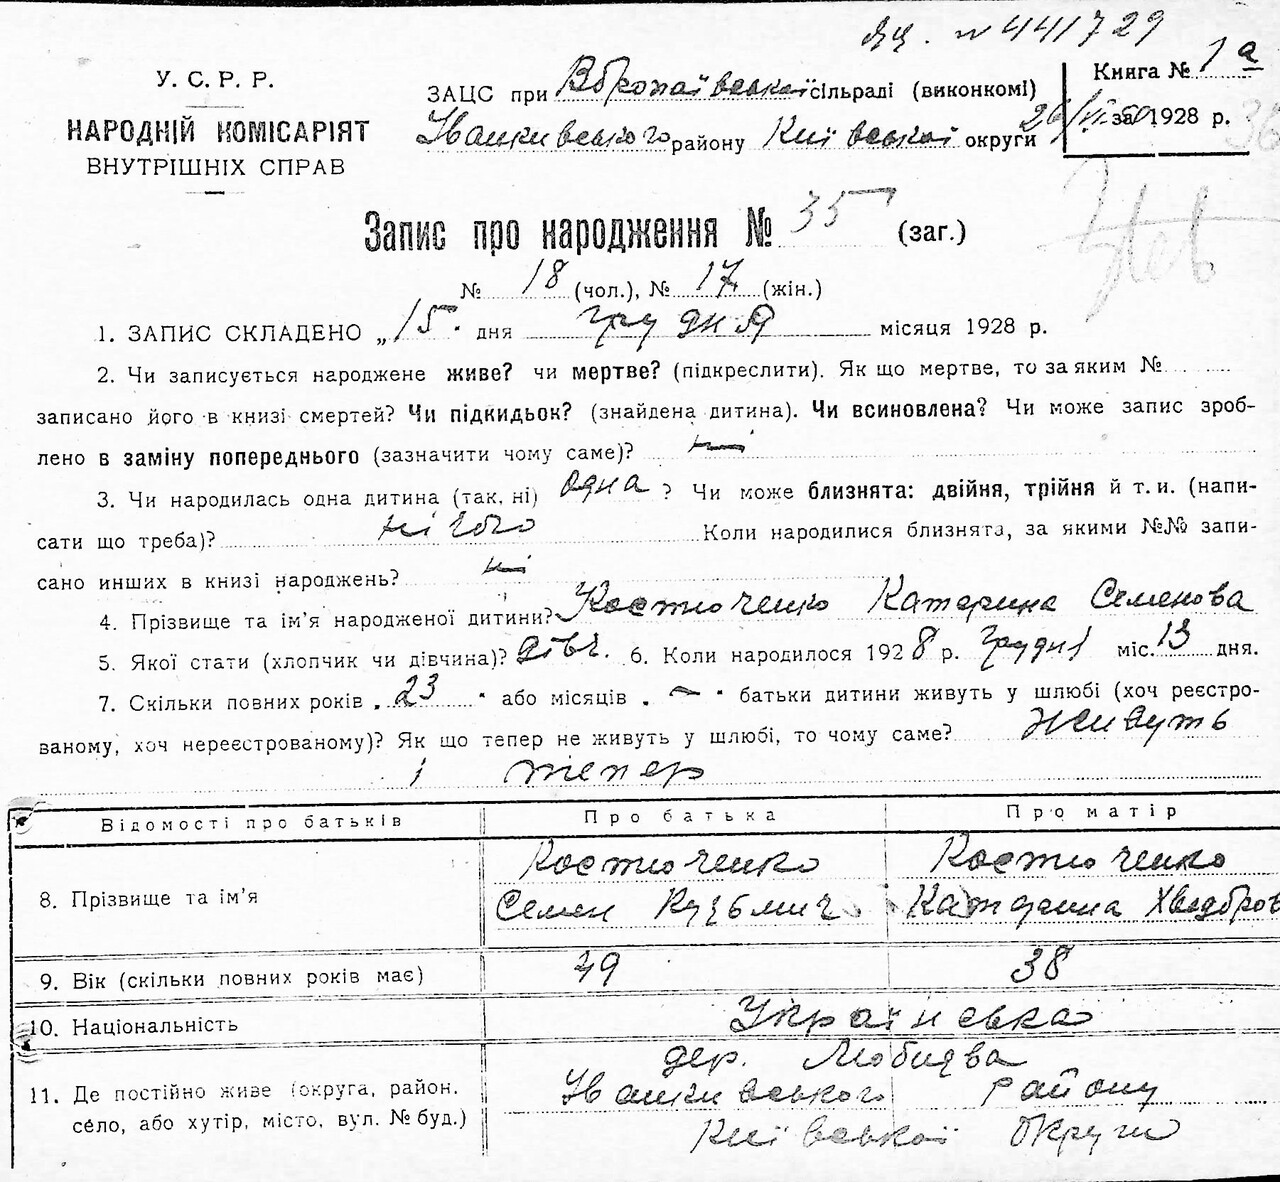 № 441729
У. С. Р. Р.
НАРОДНІЙ КОМІСАРІЯТ
ВНУТРІШНІХ СПРАВ
ЗАЦС при сільраді (виконкомі)
Іванкивського району Київської округи
Книга № 1а
за 1928 р.
Запис про народження № 35 (заг.)
№ 18 (чол.), № 17 (жін.)
1. ЗАПИС СКЛАДЕНО „15" дня грудня місяця 1928 р.
2. Чи записується народжене живе? чи мертве? (підкреслити). Як що мертве, то за яким №
записано його в книзі смертей? Чи підкидьок? (знайдена дитина). Чи всиновлена? Чи може запис зроб-
лено в заміну попереднього (зазначити чому саме)? ні
3. Чи народилась одна дитина (так, ні) одна ? Чи може близнята: двійня, трійня й т. и. (напи-
сати що треба)? нічого Коли народилися близнята, за якими №№ запи-
сано инших в книзі народжень? ні
4. Прізвище та ім'я народженої дитини? Костюченко Катерина Семенова
5. Якої стати (хлопчик чи дівчина)? дівч. 6. Коли народилося 1928 р. грудня міс. 13 дня.
7. Скільки повних років „23" або місяців „—" батьки дитини живуть у шлюбі (хоч реєстро-
ваному, хоч нереєстрованому)? Як що тепер не живуть у шлюбі, то чому саме? Живуть
і тепер
Відомості про батьків Про батька Про матір
8. Прізвище та ім'я Костюченко Семен Кузьмич Костюченко Катерина
9. Вік (скільки повних років має) 49 38
10. Національність Українська
11. Де постійно живе (округа, район, село, або хутір, місто, вул. № буд.) дер.
Іванкивського району
Київської округи